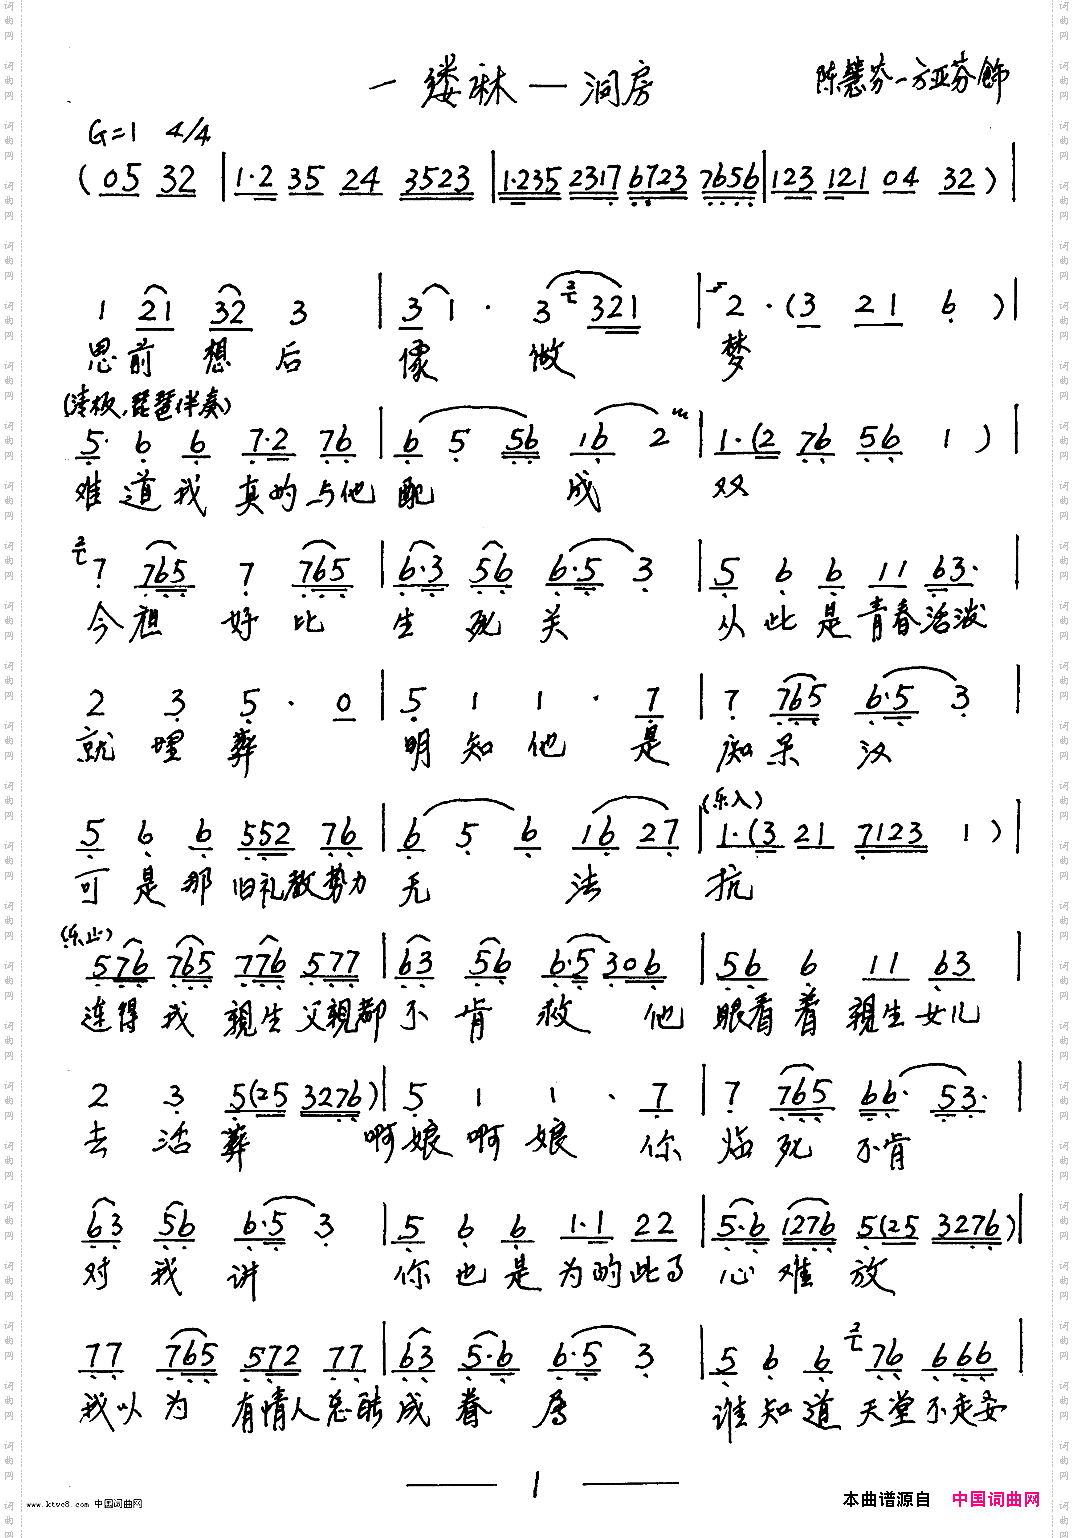 一缕麻—洞房
陈慧芬—方亚芬饰
G=1 4/4
(05 32 | 1·2 35 24 3523 | 1·235 2317 6723 7656 | 123 121 04 32) |
1 21 32 3 | 3 1 · 3 321 | 2 · (3 21 6 ) |
思前想后 像 做 梦
(清板,琵琶伴奏)
5· 6 6 7·2 76 | 6 5 56 16 2 | 1·(2 76 56 1 ) |
难道我真的与他配 成 双
7 765 7 765 | 6·3 56 6·5 3 | 5 6 6 11 63· |
今祖 好比 生死关 从此是青春活泼
2 3 5 · 0 | 5 1 1 · 7 | 7 765 6·5 3 |
就埋葬 明知他 是 痴呆汉
(乐入)
5 6 6 552 76 | 6 5 6 16 27 | 1·(3 21 7123 1 ) |
可是那旧礼教势力无 法 抗
(乐止)
576 765 776 577 | 63 56 6·5 306 | 56 6 11 63 |
连得我親生父親都不肯救他 眼看着親生女儿
2 3 5(25 3276) | 5 1 1 · 7 | 7 765 66· 53· |
去活葬 啊娘啊娘 你临死不肯
63 56 6·5 3 | 5 6 6 1·1 22 | 5·6 1276 5(25 3276) |
对我讲 你也是为的此事 心难放
77 765 572 77 | 63 5·6 6·5 3 | 5 6 6 76 666 |
我以为有情人总能成眷属 谁知道天堂不走要
1
www.ktvc8.com 中国词曲网
本曲谱源自 中国词曲网
词曲网